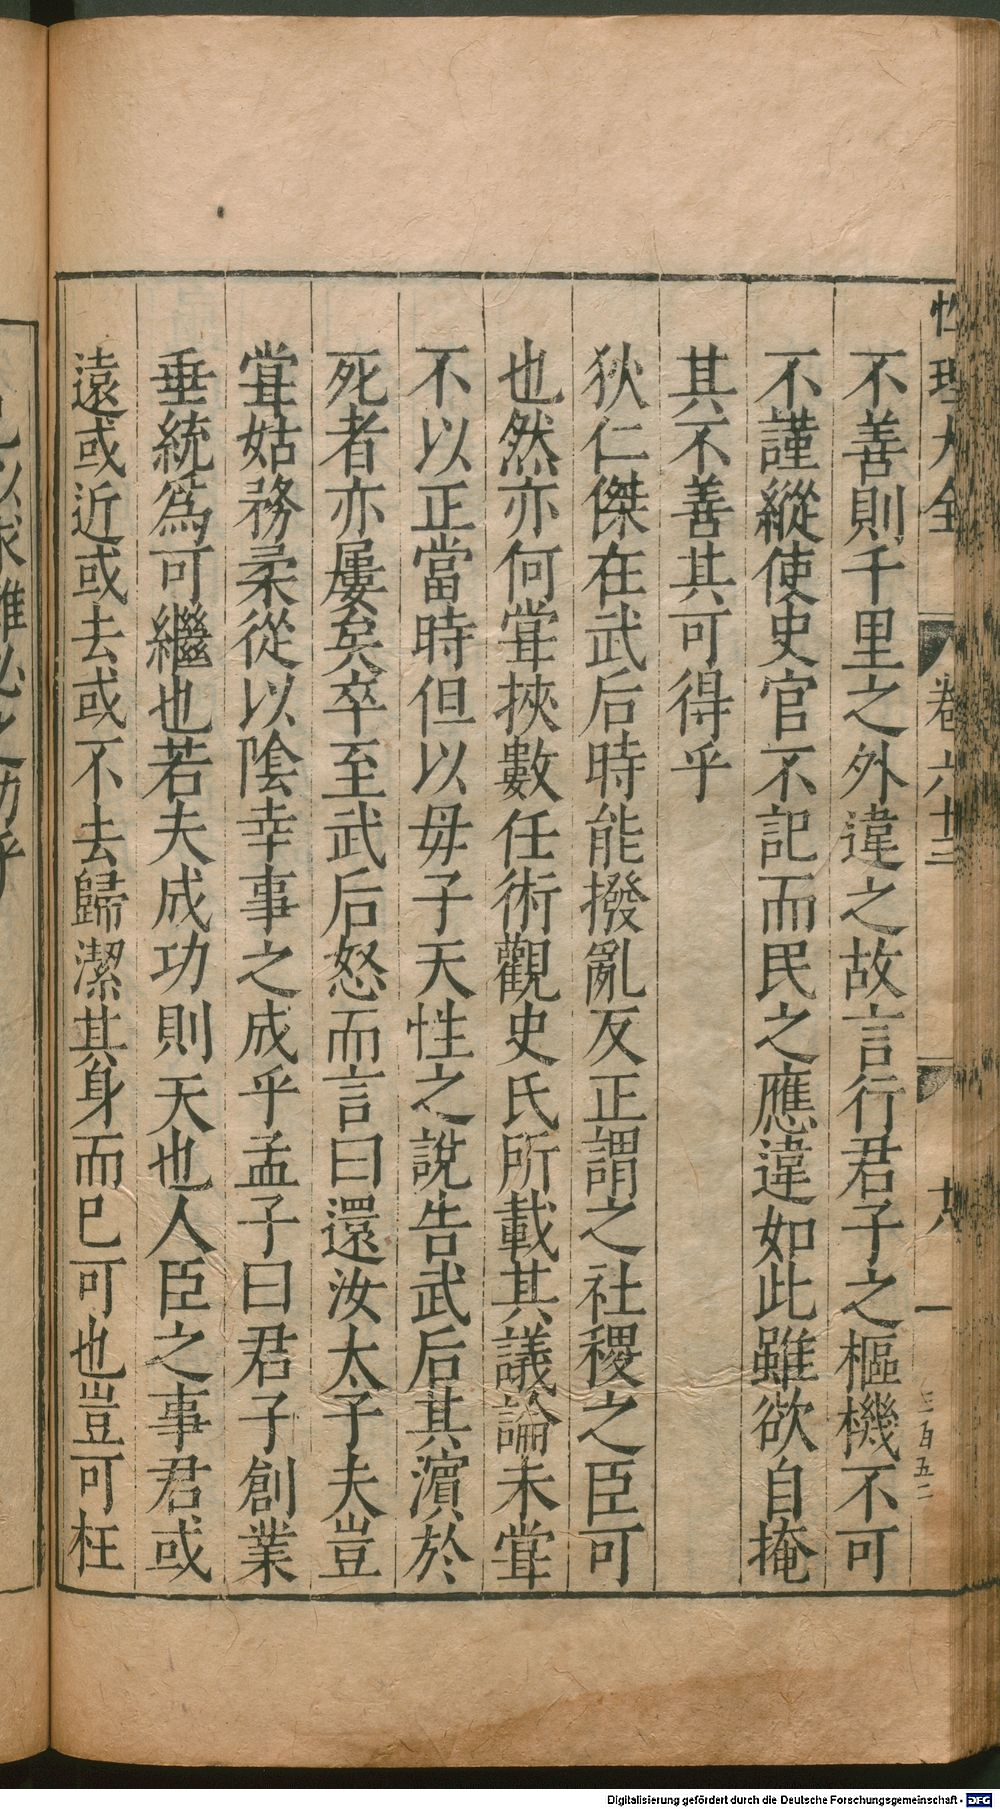 性理大全
卷六十三
三百五二
不善則千里之外違之故言行君子之樞機不可
不謹縱使史官不記而民之應違如此雖欲自掩
其不善其可得乎
狄仁傑在武后時能撥亂反正謂之社稷之臣可
也然亦何甞挾數任術觀史氏所載其議論未甞
不以正當時但以母子天性之說告武后其濵於
死者亦屢矣卒至武后怒而言曰還汝太子夫豈
甞姑務柔從以陰幸事之成乎孟子曰君子創業
垂統爲可繼也若夫成功則天也人臣之事君或
遠或近或去或不去歸潔其身而已可也豈可枉
Digitalisierung gefördert durch die Deutsche Forschungsgemeinschaft - DFG